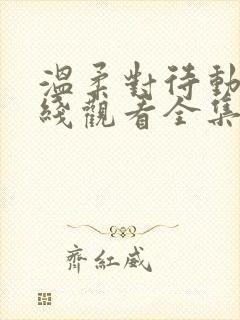 溫柔對待動
綫觀看全集
齊紅威